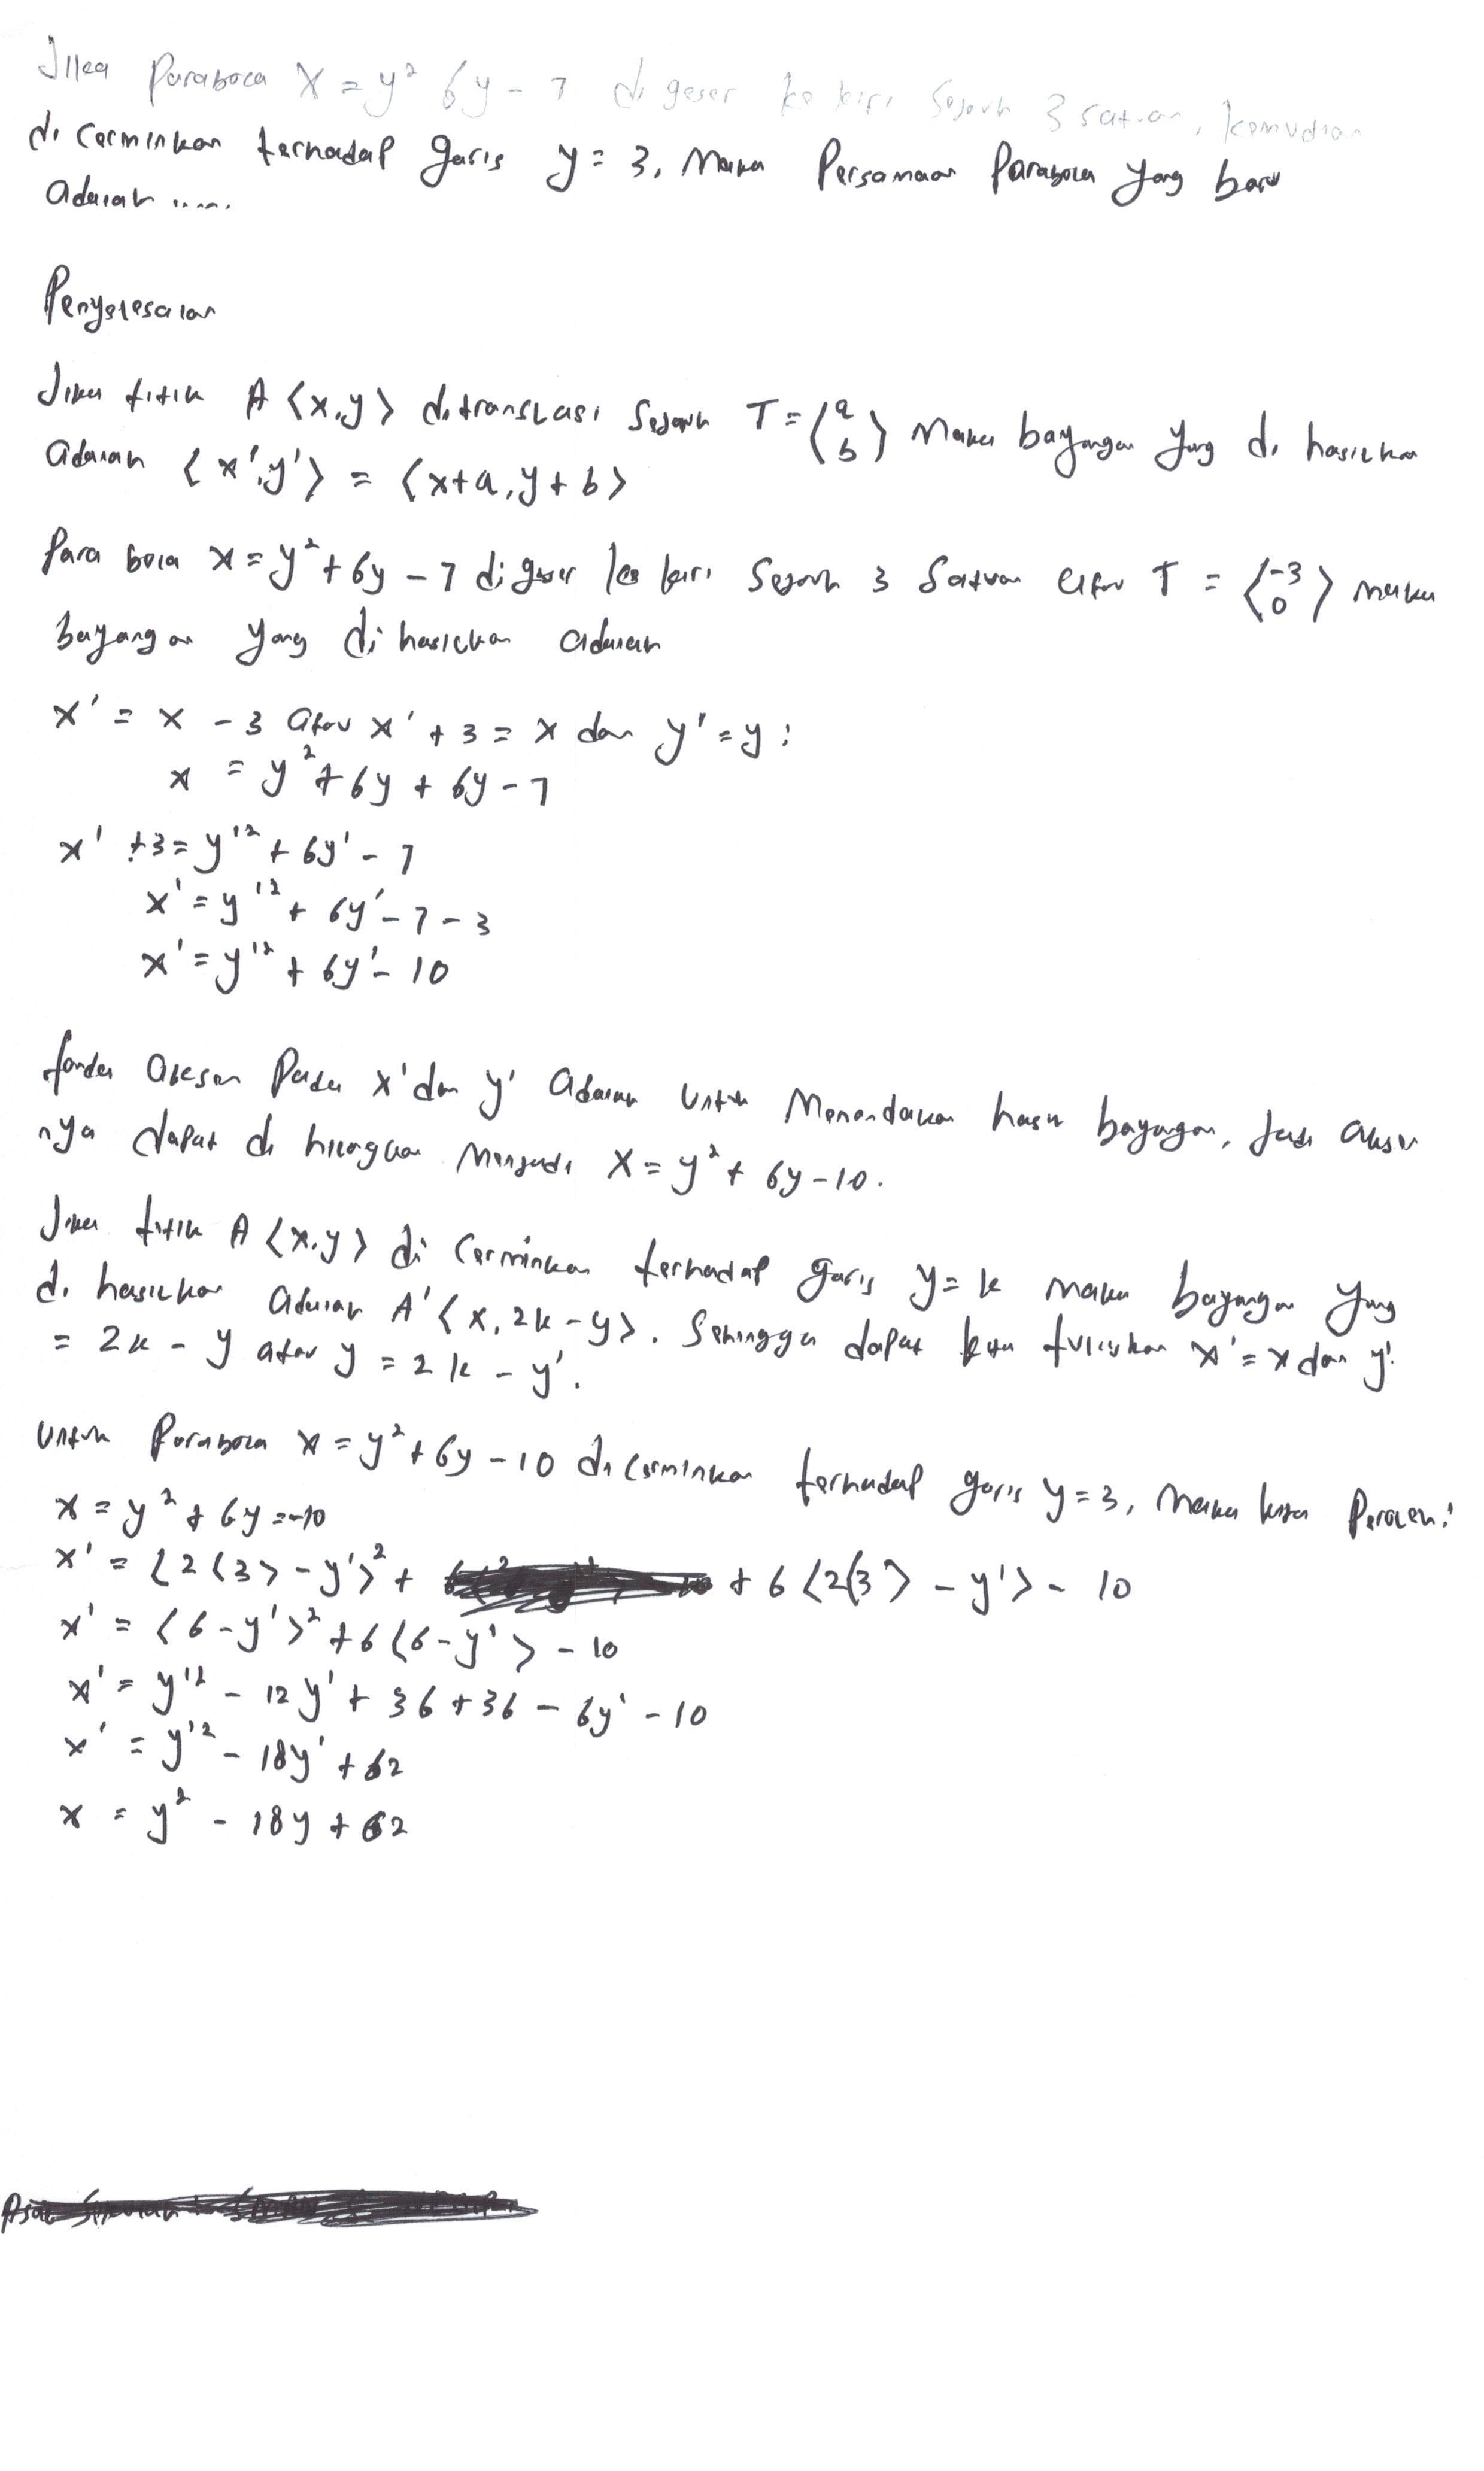 Jika Parabola x = y² 6y - 7 di geser ke kiri sejauh 3 satuan, kemudian
di cerminkan terhadap garis y = 3, maka Persamaan Parabola yang baru
adalah .....
Penyelesaian
Jika titik A (x,y) ditranslasi sejauh T = (a b) maka bayangan yang di hasilkan
adalah (x',y') = (x+a, y+b)
Para bola x = y² + 6y - 7 di geser ke kiri sejauh 3 satuan atau T = (-3 0) maka
bayangan yang di hasilkan adalah
x' = x - 3 atau x' + 3 = x dan y' = y :
x = y² + 6y + 6y - 7
x' + 3 = y'² + 6y' - 7
x' = y'² + 6y' - 7 - 3
x' = y'² + 6y' - 10
tanda aksen Pada x' dan y' adalah untuk Menandakan hasil bayangan, jadi aksen
nya dapat di hilangkan Menjadi x = y² + 6y - 10.
Jika titik A (x,y) di cerminkan terhadap garis y = k maka bayangan yang
di hasilkan adalah A' (x, 2k - y). Sehingga dapat kita tuliskan x' = x dan y'
= 2k - y atau y = 2k - y'.
untuk Parabola x = y² + 6y - 10 di cerminkan terhadap garis y = 3, maka kita Peroleh :
x = y² + 6y = -10
x' = (2(3) - y')² + + 6 (2(3) - y') - 10
x' = (6 - y')² + 6 (6 - y') - 10
x' = y'² - 12y' + 36 + 36 - 6y' - 10
x' = y'² - 18y' + 62
x = y² - 18y + 62